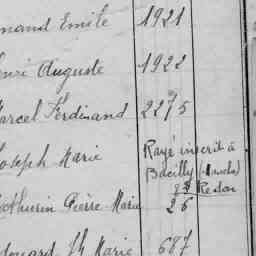 mand Emile 1921
enri Auguste 1922
arcel Ferdinand 2275
oseph Marie Rayé inscrit à
Bacilly (Manche)
23 Redon
athurin Pierre Marie 26
douard Marie 687